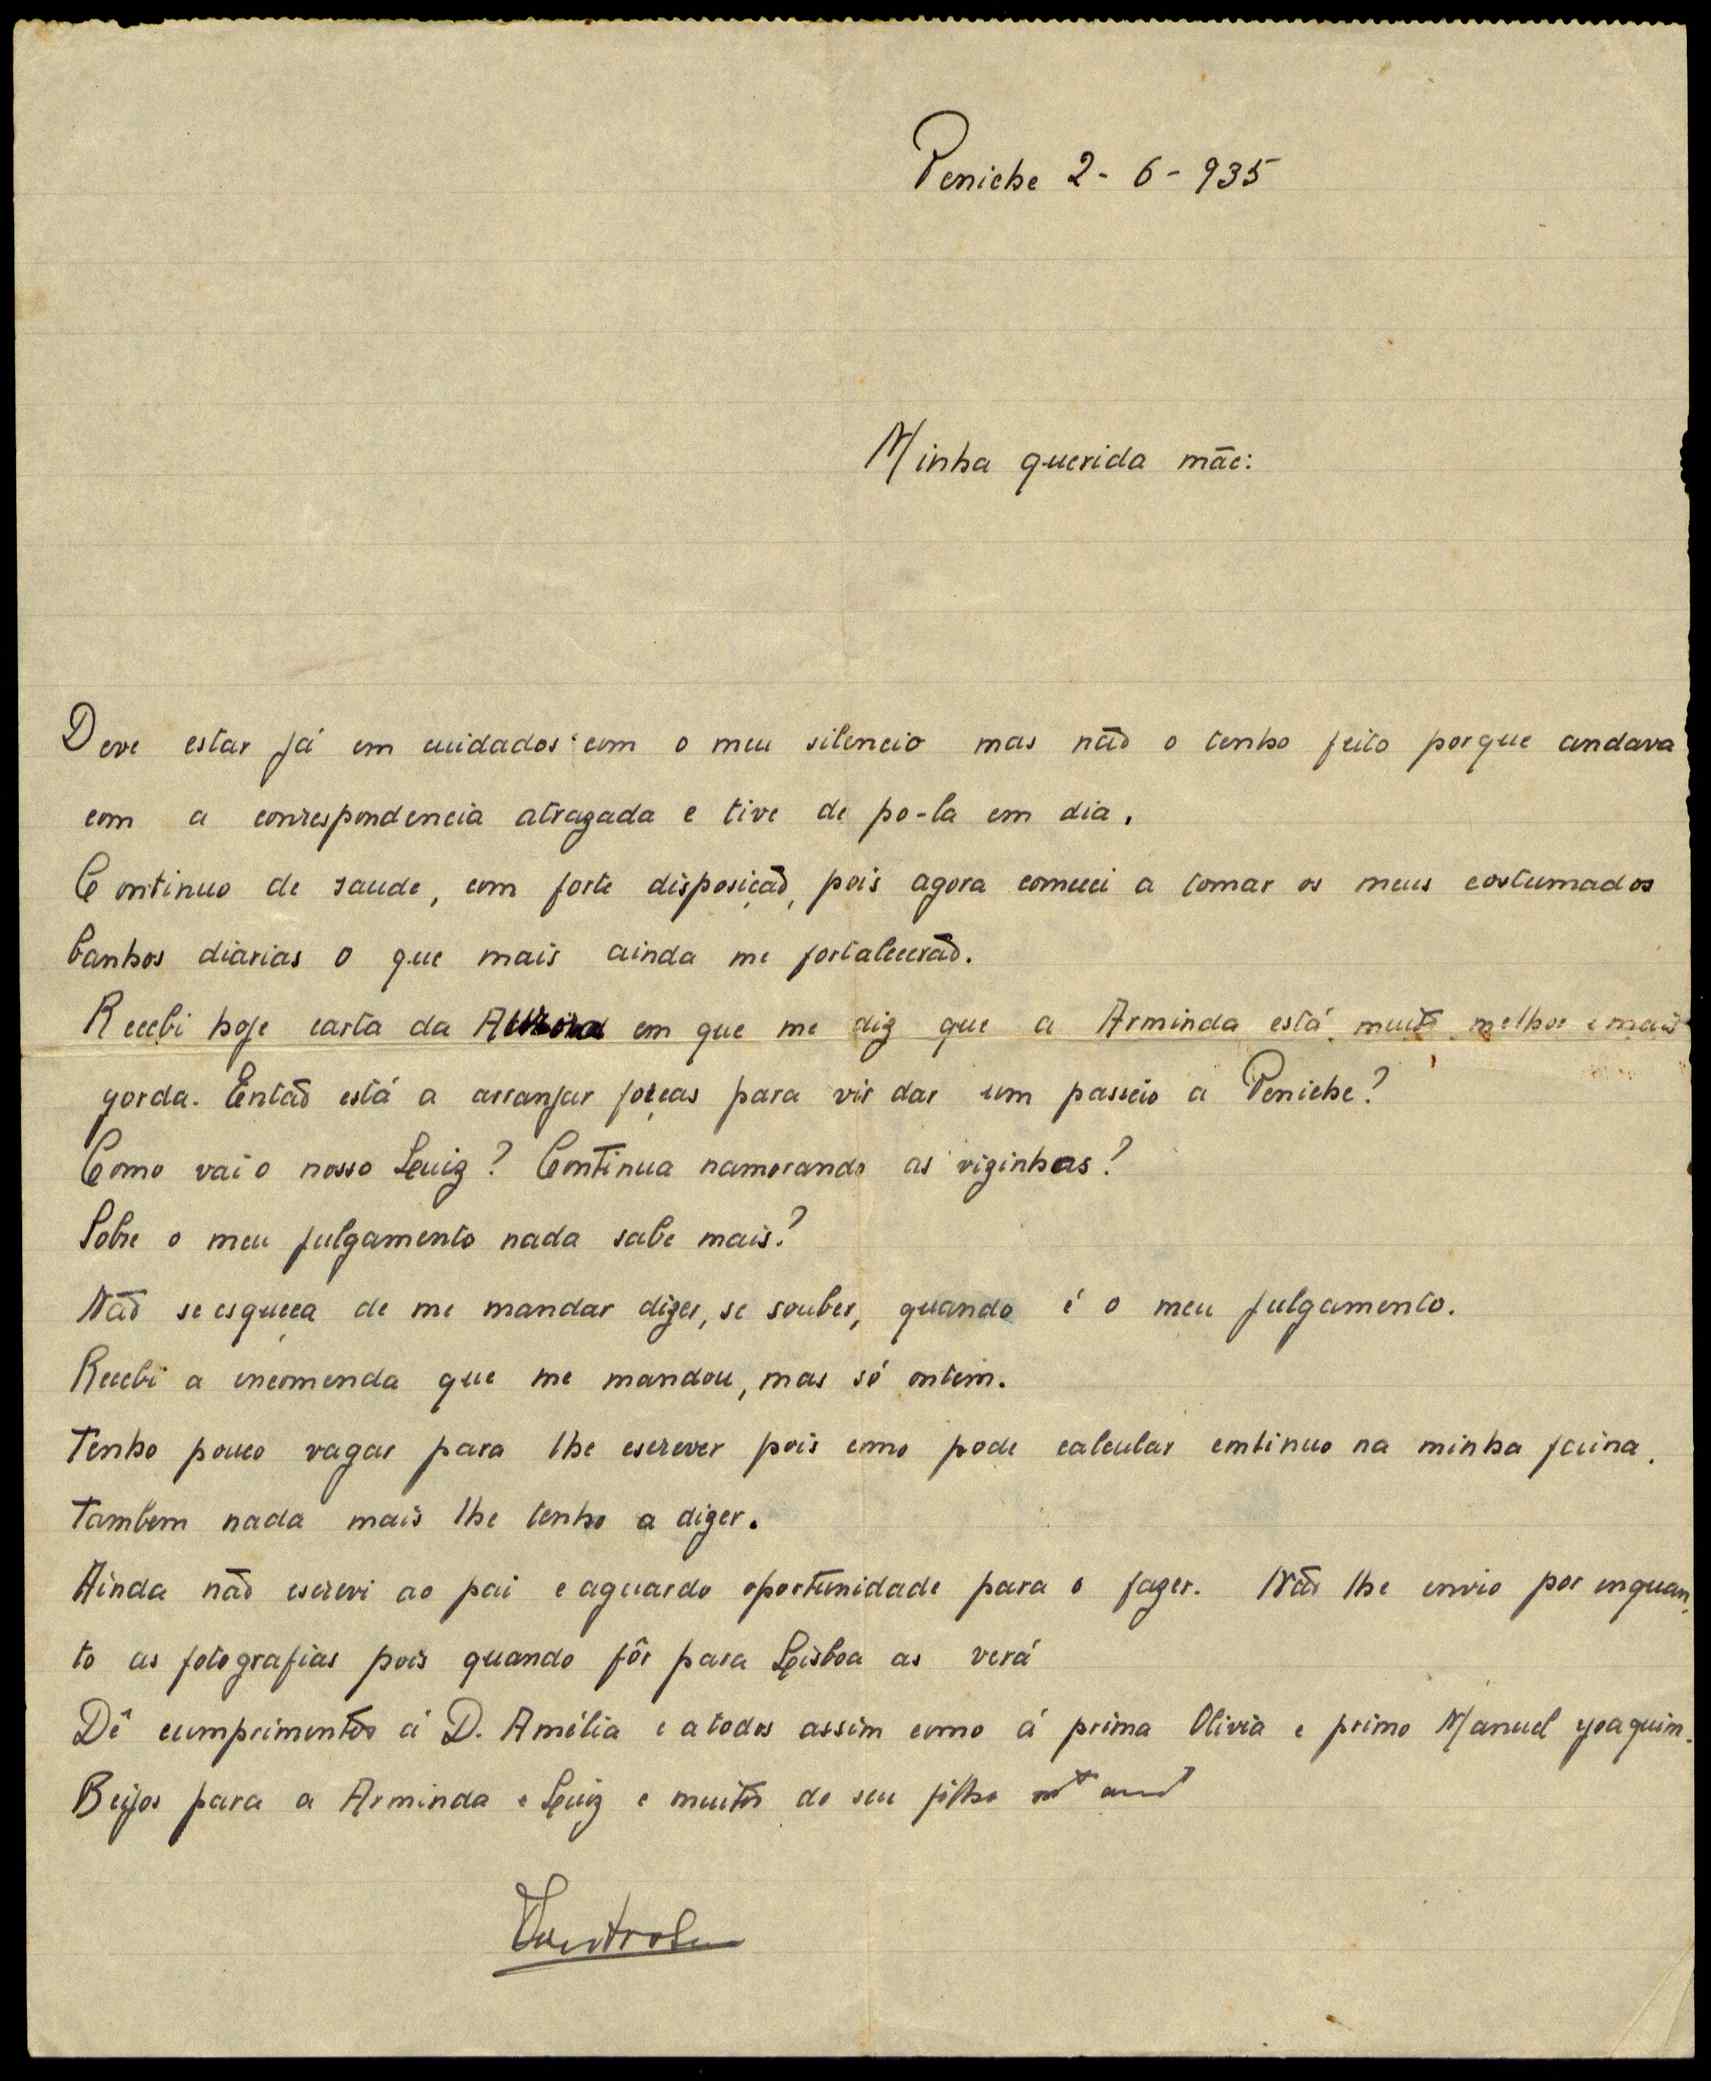 Peniche 2-6-935
Minha querida mãe:
Deve estar já em cuidados com o meu silencio mas não o tenho feito porque andava
com a correspondencia atrazada e tive de po-la em dia.
Continuo de saude, com forte disposição, pois agora comecei a tomar os meus costumados
banhos diarios o que mais ainda me fortalecerão.
Recebi hoje carta da Aurora em que me diz que a Arminda está muito melhor e mais
gorda. Então está a arranjar forças para vir dar um passeio a Peniche?
Como vai o nosso Luiz? Continua namorando as vizinhas?
Sobre o meu julgamento nada sabe mais?
Não se esqueça de me mandar dizer, se souber, quando é o meu julgamento.
Recebi a encomenda que me mandou, mas só ontem.
Tenho pouco vagar para lhe escrever pois como pode calcular continuo na minha faina.
Tambem nada mais lhe tenho a dizer.
Ainda não escrevi ao pai e aguardo oportunidade para o fazer. Não lhe envio por enquan-
to as fotografias pois quando fôr para Lisboa as verá
Dê cumprimentos á D. Amélia e a todos assim como á prima Olivia e primo Manuel Joaquim.
Beijos para a Arminda e Luiz e muitos do seu filho mto